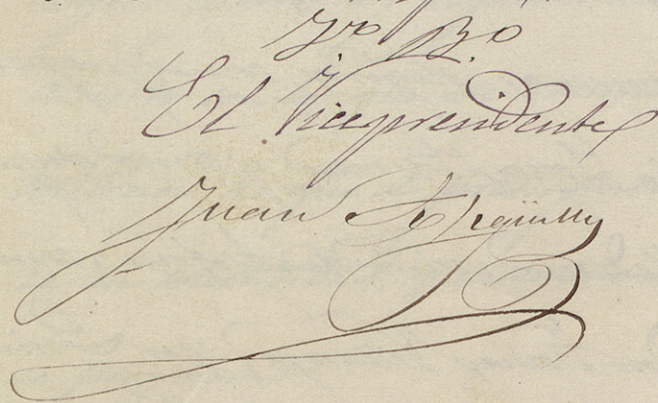 Vº Bº
El Vicepresidente
Juan